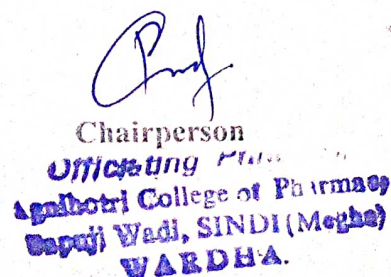 Chairperson
Officiating
Agnihotri College of Pharmacy
Bapuji Wadi, SINDI (Meghe)
WARDHA.